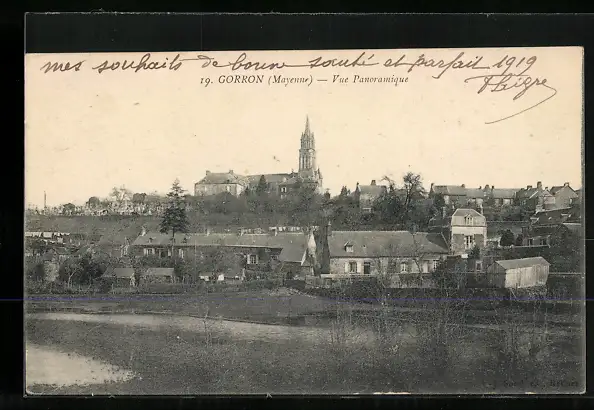 mes souhaits de bonne santé et parfait 1919
19. GORRON (Mayenne) — Vue Panoramique